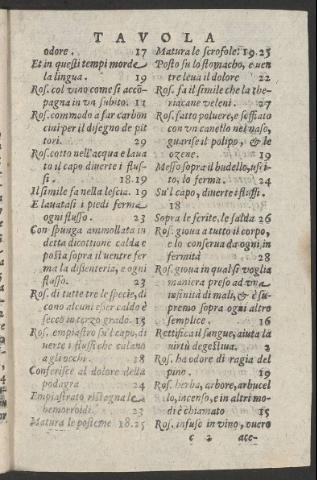 TAVOLA
odore. 17
Et in questi tempi morde
la lingua. 19
Ros. col vino come si acco-
pagna in vn subito. 11
Ros. commodo a far carbon
cini per il disegno de pit
tori. 29
Ros. cotto nell'acqua e laua
to il capo diuerte i flus-
si. 18.19
Il simile fa nella lescia. 19
E lauatasi i piedi ferma
ogni flusso. 23
Con spunga ammollata in
detta dicottione calda e
posta sopra il uentre fer
ma la disenteria, e ogni
flusso. 23
Ros. di tutte tre le specie, di
cono alcuni esser caldo è
secco in terzo grado. 18
Ros. empiastro su'l capo, di
uerte i flussi che calano
a gli occhi. 18
Conferisce al dolore della
podagra 24
Empiastrato risologna le
hemorroidi. 23
Matura le posteme 18.25
Matura le scrofole: 19.25
Posto su lo stomacho, e uen
tre leua il dolore 22
Ros. fa il simile che la the-
riaca ne veleni. 27
Ros. fatto poluere, e soffiato
con vn canello nel naso,
guarisce il polipo, & le
ozene. 19
Messo sopra il budello, usci-
to, lo ferma. 24
Su'l capo, diuerte i flussi.
18
Sopra le ferite, le salda 26
Ros. gioua a tutto il corpo,
e lo conserua da ogni in
fermità 28
Ros. gioua in qual si voglia
maniera preso ad vna
infinità di mali, & è su-
premo sopra ogni altro
semplice. 16
Rettifica il sangue, aiuta la
uirtù degestiua. 2
Ros. ha odore di ragia del
pino. 19
Ros. herba, arbore, arbucel
lo, incenso, e in altri mo-
di è chiamato 15
Ros. infuso in vino, ouero
c 2 ace-